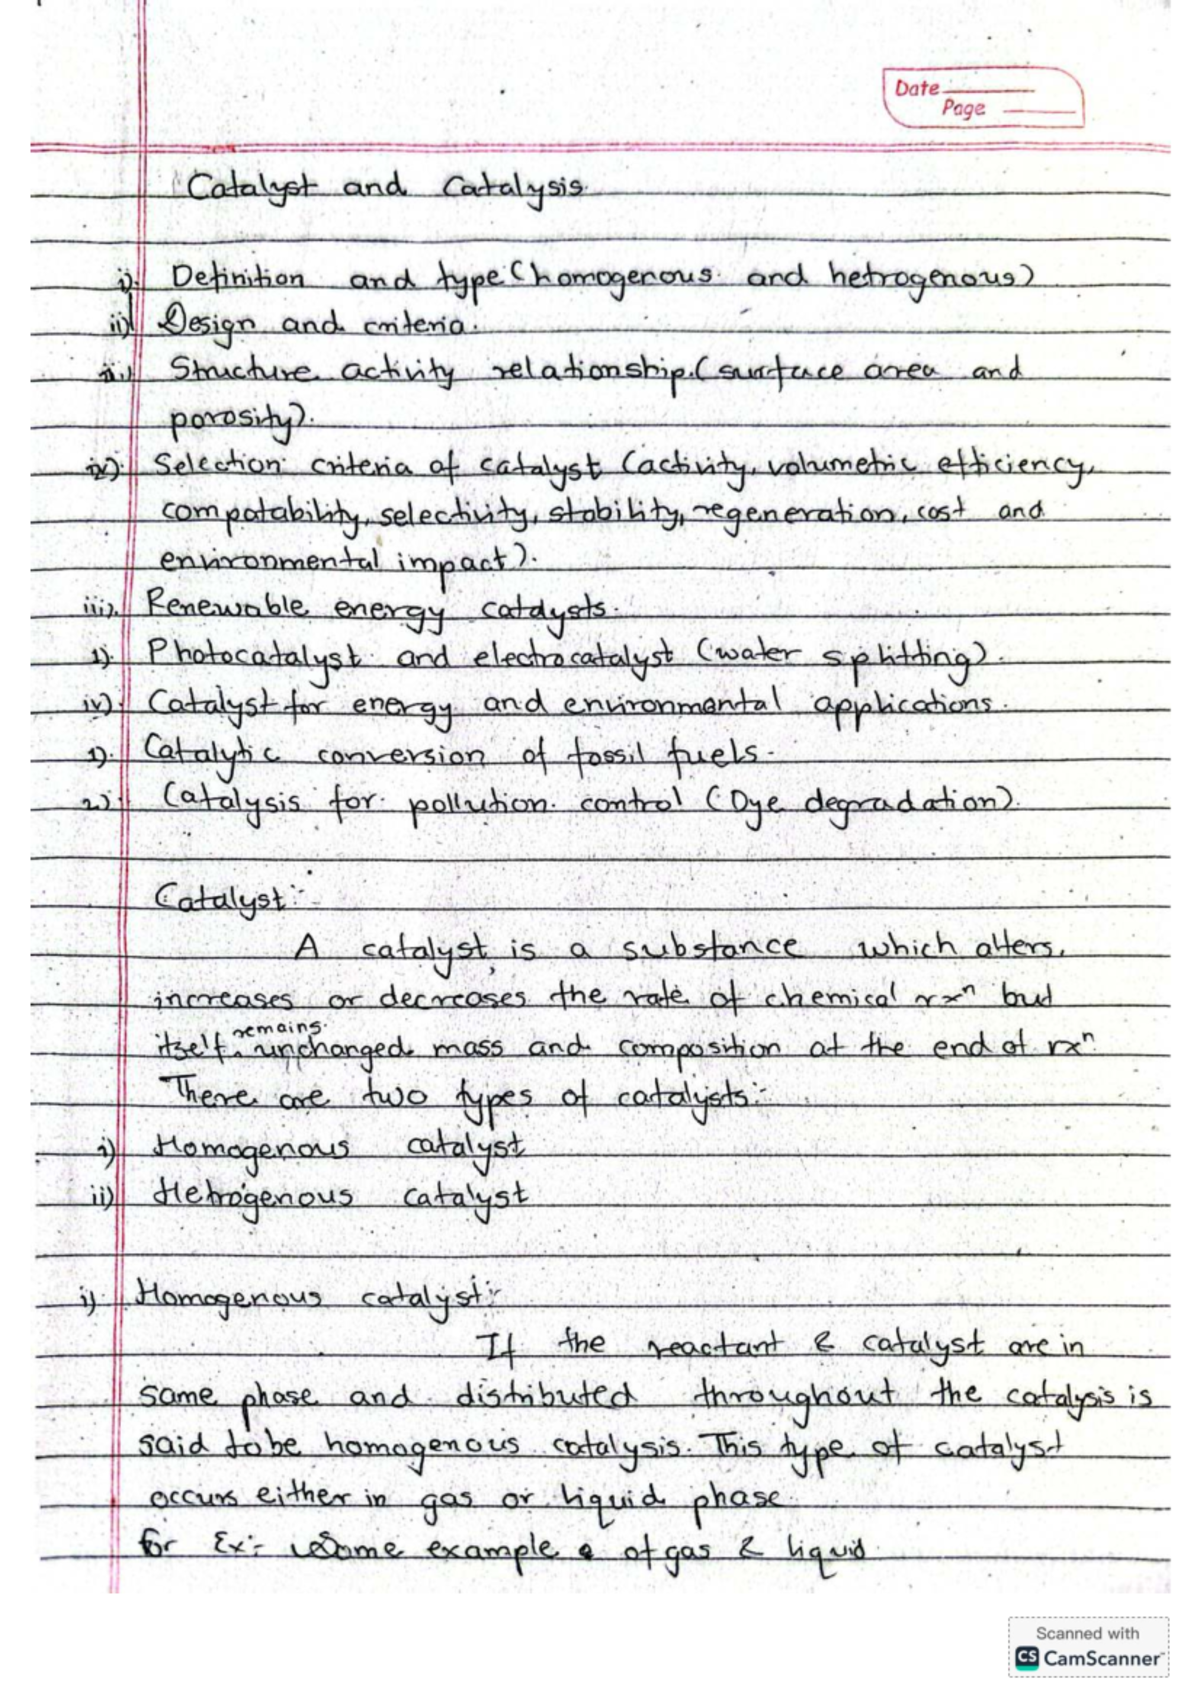 Date
Page
Catalyst and Catalysis.
i). Definition and type (homogenous and hetrogenous)
ii) Design and criteria.
iii) Structure activity relationship. (surface area and
porosity).
iv). Selection criteria of catalyst (activity, volumetric efficiency,
compatability, selectivity, stability, regeneration, cost and
environmental impact).
iii). Renewable energy catalysts.
1). Photocatalyst and electrocatalyst (water splitting).
iv). Catalyst for energy and environmental applications.
1). Catalytic conversion of fossil fuels.
2). Catalysis for pollution control (Dye degradation).
Catalyst:-
A catalyst is a substance which alters,
increases or decreases the rate of chemical rxⁿ but
itself remains unchanged mass and composition at the end of rxⁿ.
There are two types of catalysts:-
i) Homogenous catalyst
ii) Hetrogenous catalyst
i) Homogenous catalyst:-
If the reactant & catalyst are in
same phase and distributed throughout the catalysis is
said to be homogenous catalysis. This type of catalyst
occurs either in gas or liquid phase.
for Ex:- Some example of gas & liquid
Scanned with
CS CamScanner